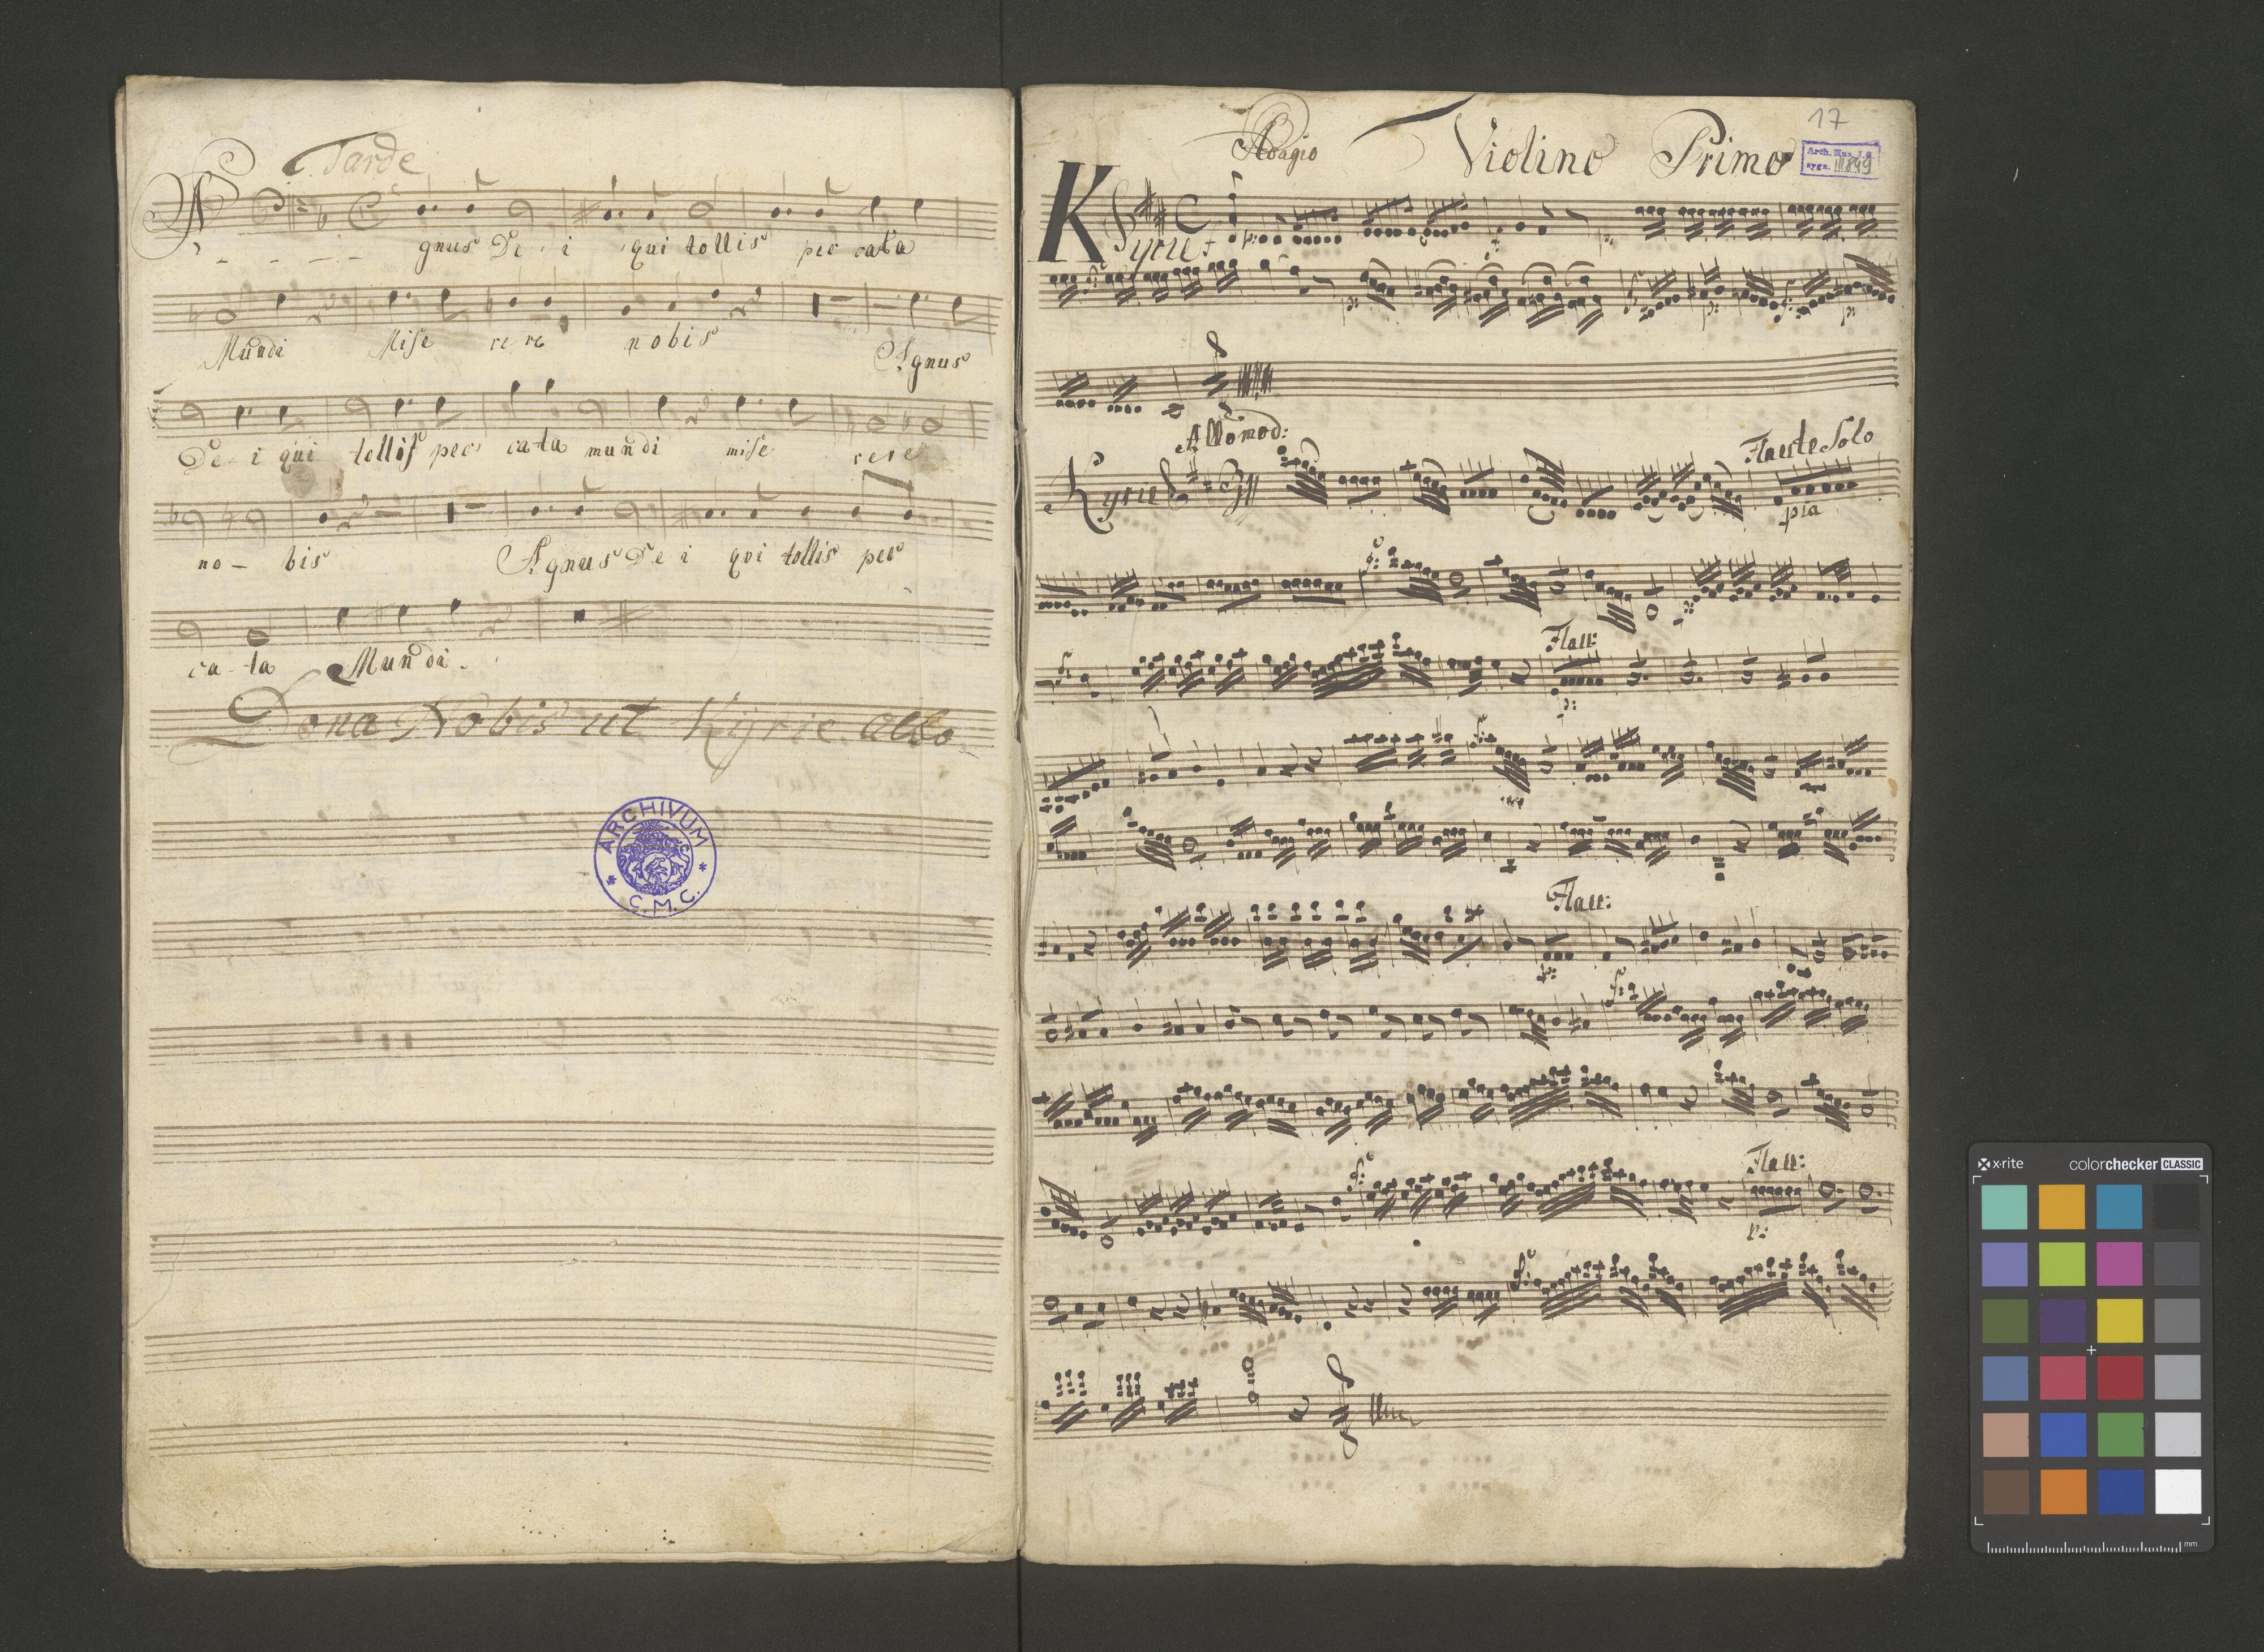 Tarde
A - - - - gnus De - i qui tollis pec cata
Mundi Mise re re nobis Agnus
De - i qui tollis pec cata mundi mise rere
no - bis Agnus De i qui tollis pec
ca - ta Mundi.
Dona Nobis ut Kyrie allo
ARCHIVUM
* C. M. C. *
17
Adagio Violino Primo
Arch. Mus. J. G.
sygn. III.849
Kyrie
f p:
p: f: p: f: p:
Allo mod:
Kyrie Flaute Solo
pia
f:
f: Flau:
p:
f:
Flau:
p:
f:
f: Flau:
p:
f:
x·rite colorchecker CLASSIC
mm